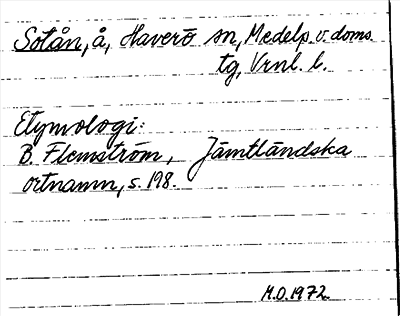 Sotån, å, Haverö sn, Medelp. v. doms.
tg, Vrnl. l.
Etymologi:
B. Flemström, Jämtländska
ortnamn, s. 198.
M.O. 1972